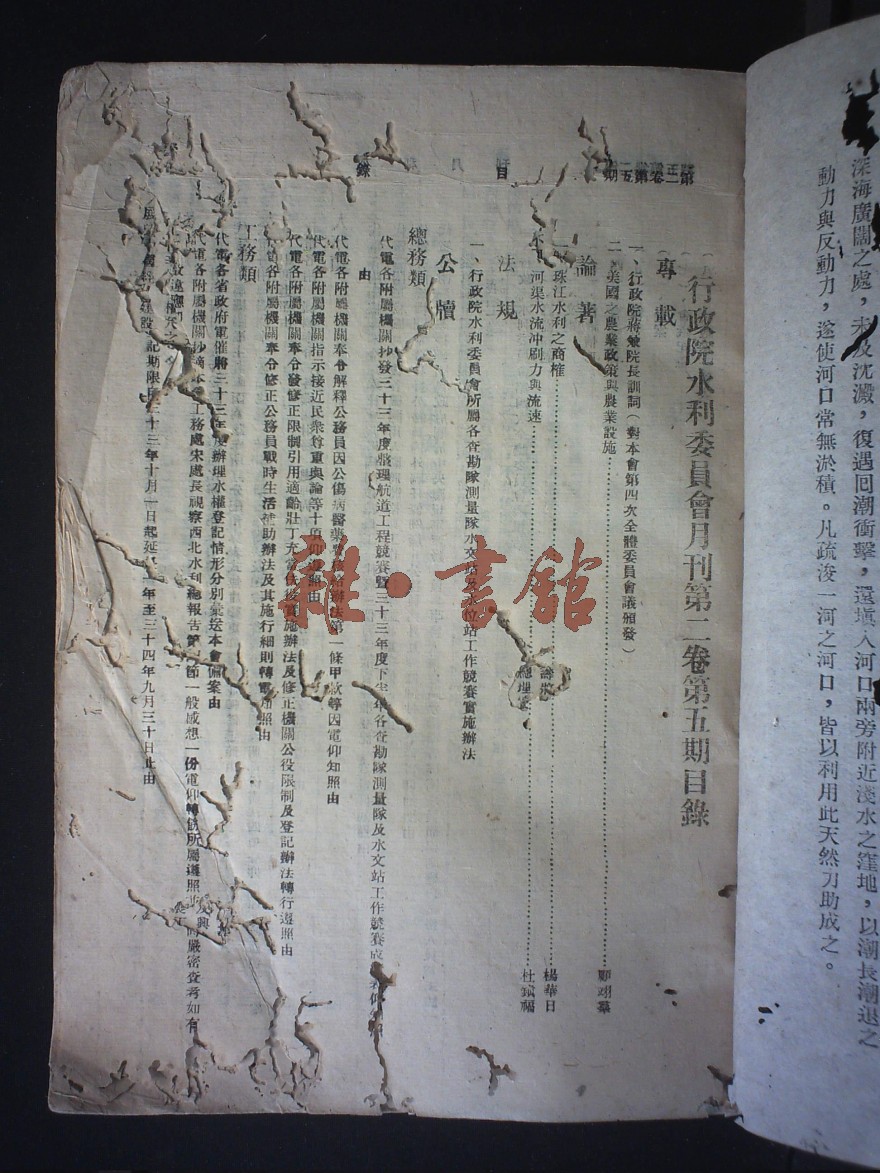 深海廣闊之處，未及沈澱，復遇回潮衝擊，還塡入河口兩旁附近淺水之窪地，以潮長潮退之
動力與反動力，遂使河口常無淤積。凡疏浚一河之河口，皆以利用此天然刀助成之。
行政院水利委員會月刊第二卷第五期目錄
專載
一、行政院蔣院長訓詞（對本會第四次全體委員會議頒發）
二、美國之農業政策與農業設施
論著
珠江水利之商榷 楊華日
河渠水流冲刷力與流速 杜鎮福
法規
一、行政院水利委員會所屬各查勘隊測量隊水文站及水位站工作競賽實施辦法
公牘
總務類
代電各附屬機關抄發三十三年度整理航道工程競賽暨三十三年度下半年各查勘隊測量隊及水文站工作競賽成
由
代電各附屬機關奉令解釋公務員因公傷病醫藥 辦法第一條甲款等因電仰知照由
代電各附屬機關指示接近民衆尊重輿論等十項仰遵照由
代電各附屬機關奉令發修正限制引用適齡壯丁充當伕役實施辦法及修正機關公役限制及登記辦法轉行遵照由
電各附屬機關奉令修正公務員戰時生活補助辦法及其施行細則轉電知照由
工務類
代電各省政府電催將三十三年度辦理水權登記情形分別彙送本會備案由
代電各附屬機關抄摘本 工務處宋處長視察西北水利總報告第 節一般感想一份電仰轉飭所屬遵照 嚴密查考如有
記期限自三十三年十月一日起延 一年至三十四年九月三十日止由
第二卷第五期
目
錄
雜·書館